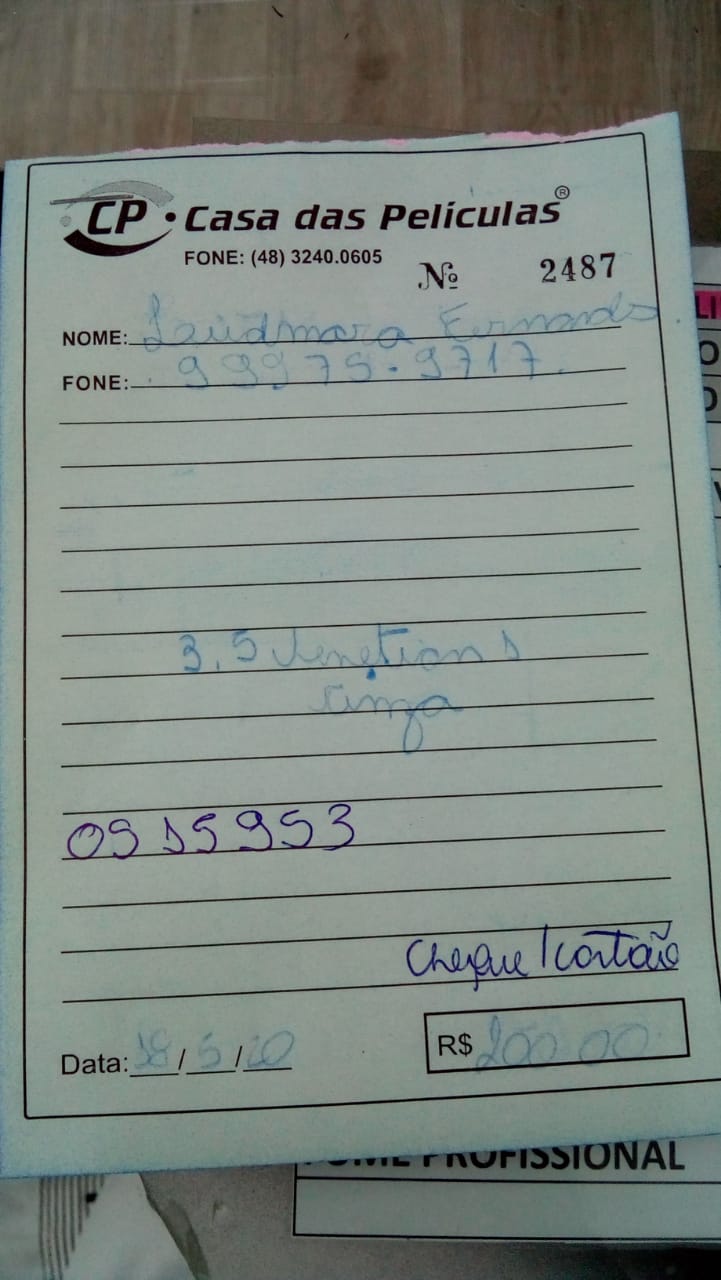 CP • Casa das Películas®
FONE: (48) 3240.0605
Nº 2487
NOME: Laudmara Fernands.
FONE: 99975-9717.
3,5 Venetian S
Cinza
OS 15953
Cheque/cartão
Data: 18/5/20
R$ 200,00
PROFISSIONAL